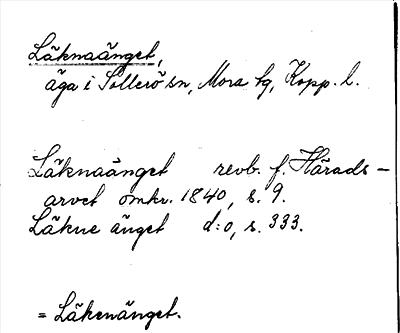 Läknaänget,
äga i Sollerö sn, Mora tg, Kopp. l.
Läknaänget revb. f. Härads-
arvet omkr. 1840, s. 9.
Läkne änget d:o, s. 333.
= Läkenänget.